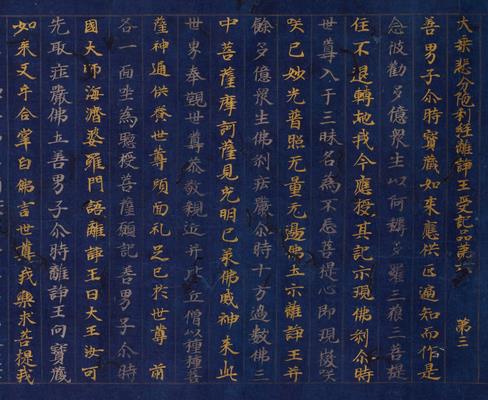 大乘悲分陀利經離諍王受記品第六 第三
善男子尒時寶藏如來應供正遍知而作是
念彼勸多億衆生以阿耨多羅三藐三菩提
住不退轉地我今應授其記示現佛剎尒時
世尊入于三昧名為不忘菩提心即現微咲
咲已妙光普照无量无邊佛土示離諍王并
餘多億衆生佛剎莊嚴尒時十方過數佛土
中菩薩摩訶薩見光明已承佛威神來此
世界奉覲世尊恭敬親近并比丘僧以種種菩
薩神通供養世尊頭面礼足已於世尊前
各一面坐為聽授菩薩願記善男子尒時
國大師海濟婆羅門語離諍王曰大王汝可
先取莊嚴佛土善男子尒時離諍王向寶藏
如來叉手合掌白佛言世尊我樂求菩提我